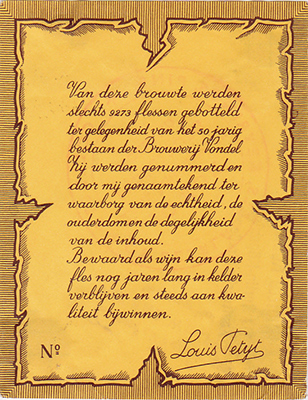 Van deze brouwte werden
slechts 9273 flessen gebotteld
ter gelegenheid van het 50 jarig
bestaan der Brouwerij Vondel
Zij werden genummerd en
door mij genaamtekend ter
waarborg van de echtheid, de
ouderdom en de degelijkheid
van de inhoud.
Bewaard als wijn kan deze
fles nog jaren lang in kelder
verblijven en steeds aan kwa-
liteit bijwinnen.
Nº
Louis Petyt